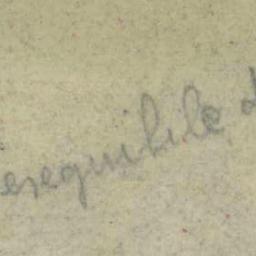 eseguibile d